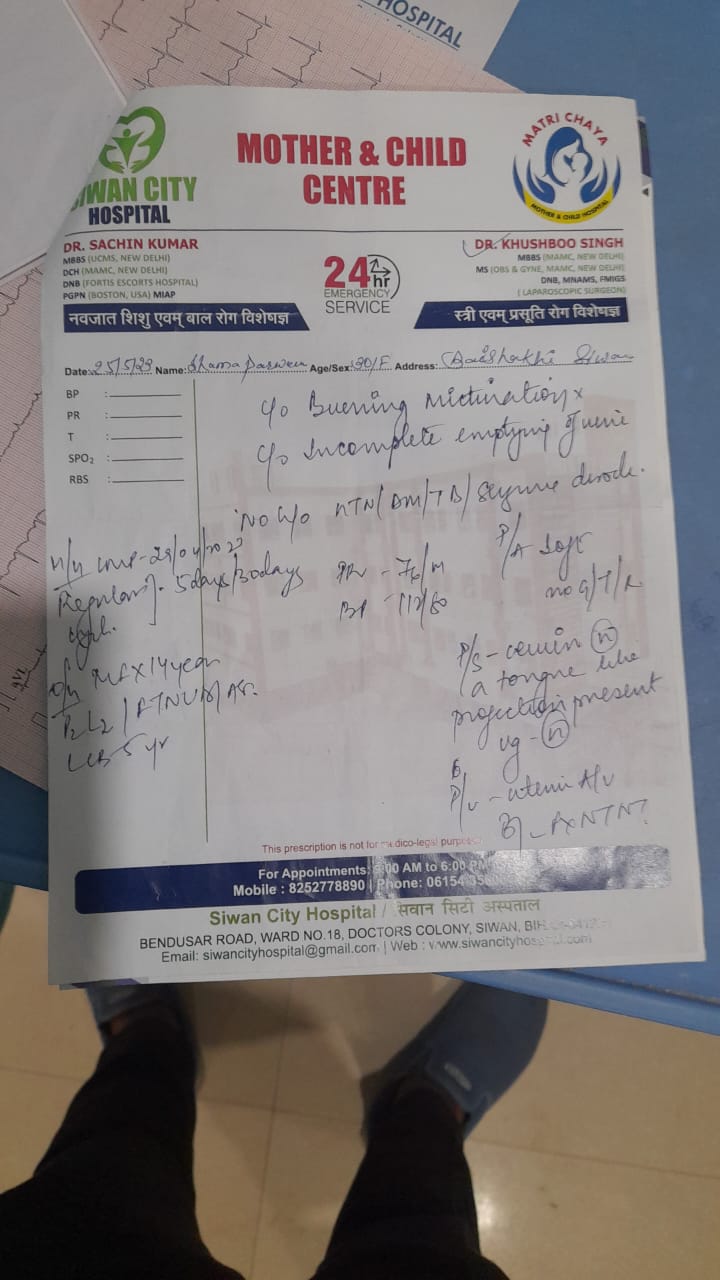 HOSPITAL
SIWAN CITY
HOSPITAL
MOTHER & CHILD
CENTRE
MATRI CHAYA
MOTHER & CHILD HOSPITAL
DR. SACHIN KUMAR
MBBS (UCMS, NEW DELHI)
DCH (MAMC, NEW DELHI)
DNB (FORTIS ESCORTS HOSPITAL)
PGPN (BOSTON, USA) MIAP
नवजात शिशु एवम् बाल रोग विशेषज्ञ
24hr
EMERGENCY
SERVICE
DR. KHUSHBOO SINGH
MBBS (MAMC, NEW DELHI)
MS (OBS & GYNE, MAMC, NEW DELHI)
DNB, MNAMS, FMIGS
(LAPAROSCOPIC SURGEON)
स्त्री एवम् प्रसूति रोग विशेषज्ञ
Date: 25/5/23 Name: Age/Sex: 30/F Address: Siwan
BP :
PR :
T :
SPO2 :
RBS :
c/o Burning micturition x
c/o Incomplete emptying of urine
No h/o HTN/DM/TB/
M/H LMP- 29/04/2023
Regular 5days/30days
cycle.
O/H MF x 14 year
P2L2/FTNVD/
LCB 5 yr
PR - 76/M
BP - 112/60
P/A Soft
no G/T/R
P/S - cervix (n)
a tongue like
projection present
vg - (n)
P/V - uterus A/V
B/L FxNTNT
This prescription is not for medico-legal purpose
For Appointments: AM to 6:00 PM
Mobile : 8252778890 | Phone: 06154
Siwan City Hospital / सिवान सिटी अस्पताल
BENDUSAR ROAD, WARD NO.18, DOCTORS COLONY, SIWAN,
Email: siwancityhospital@gmail.com | Web : www.siwancityhospital.com